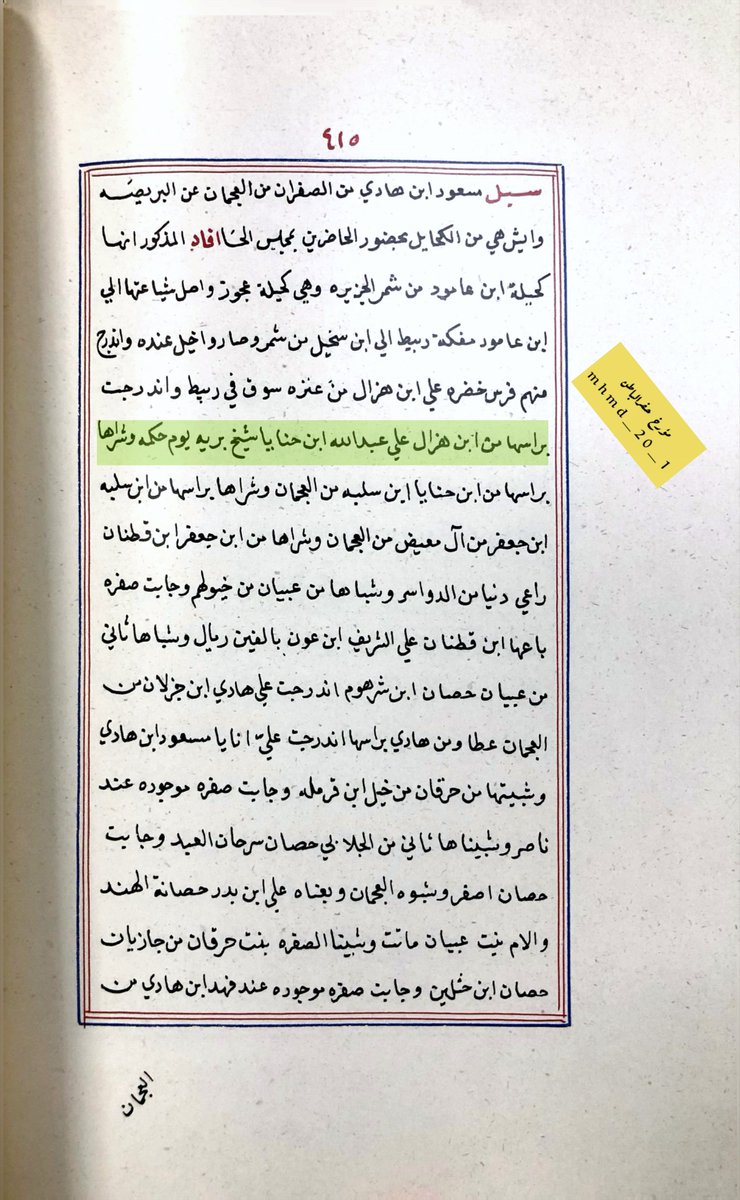 ٤١٥
سيل مسعود ابن هادي من الصفران من العجمان عن البريصه
وايش هي من الكحايل بحضور الحاضرين بمجلس الحسا افاد المذكور انها
كحيلة ابن عامود من شمر الجزيره وهي كحيلة عجوز واصل شياعتها الي
ابن عامود مفكة ربيط الي ابن سنجيل من شمر وصاروا خيل عنده واندرج
منهم فرس خضره علي ابن هزال من عنزه سوف في ربيط واندرجت
براسها من ابن هزال علي عبدالله ابن حنايا شيخ بريه يوم حكمه وشراها
براسها من ابن حنايا ابن سلبه من العجمان وشراها براسها من ابن سلبه
ابن جعفر من آل معيض من العجمان وشراها من ابن جعفر ابن قطنان
راعي دنيا من الدواسر وشباها من عبيان من خيولهم وجابت صفره
باعها ابن قطنان علي الشريف ابن عون بالفين ريال وشباها ثاني
من عبيان حصان ابن شرهوم اندرجت علي هادي ابن جزلان من
العجمان عطا ومن هادي براسها اندرجت عليّ انا يا مسعود ابن هادي
وشبيتها من حرقان من خيل ابن قرمله وجابت صفره موجوده عند
ناصر وشبيناها ثاني من الجلابي حصان سرحان العبد وجابت
حصان اصفر وشبوه العجمان وبعناه علي ابن بدر حصانة الهند
والام بنت عبيان ماتت وشبينا الصفره بنت حرقان من جازيات
حصان ابن حثلين وجابت صفره موجوده عند فهد ابن هادي من
العجمان
مؤرخ حفر الباطن
mhmd_20_1